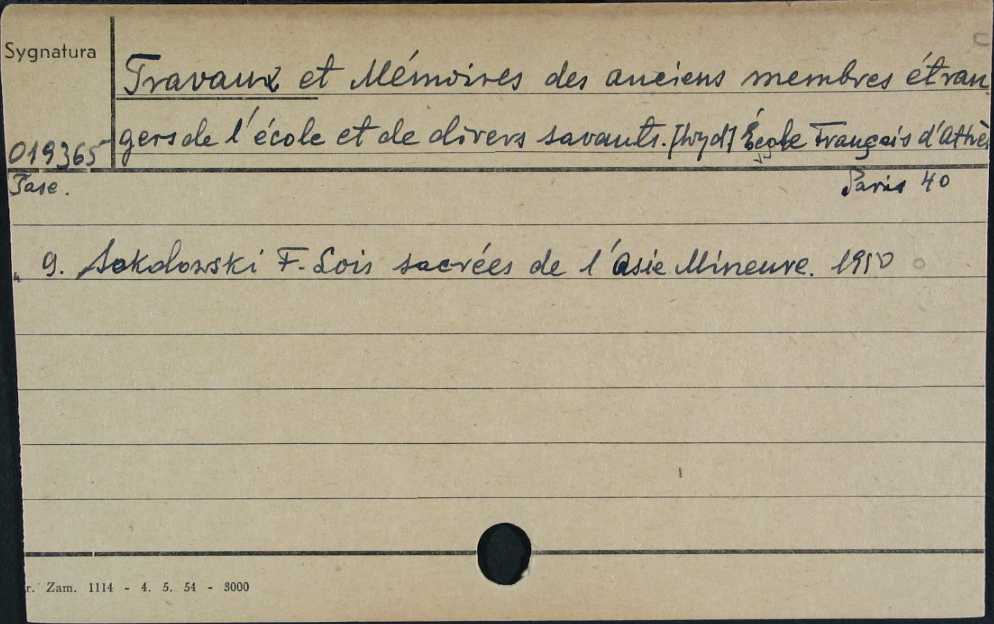 Sygnatura
Travaux et Mémoires des anciens membres étran
gers de l'école et de divers savants. [Wyd] École Français d'Athè
019365
Fasc. Paris 40
9. Sokolowski F. Lois sacrées de l'Asie Mineure. 1950
r. Zam. 1114 - 4. 5. 54 - 3000